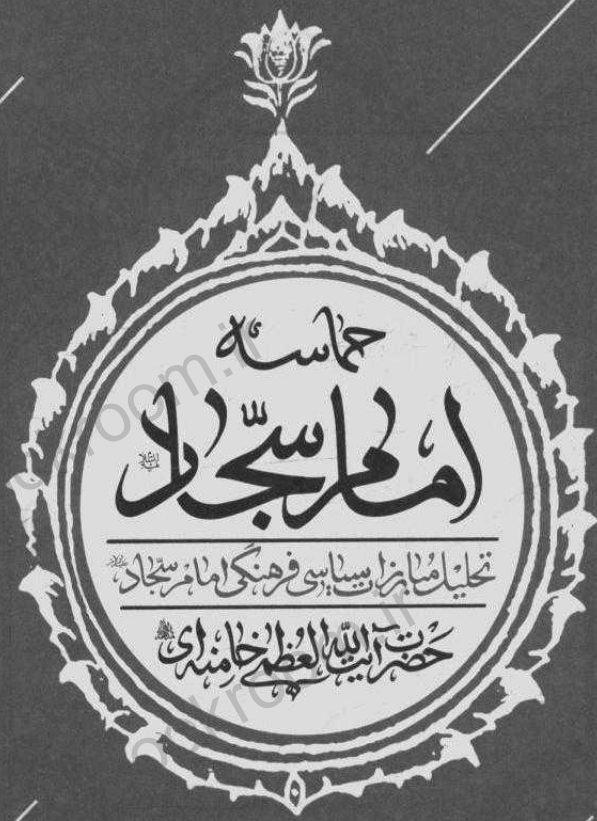 حماسه
امام سجّاد
تحلیل مبارزات سیاسی فرهنگی امام سجّاد
حضرت آیت‌الله العظمی خامنه‌ای